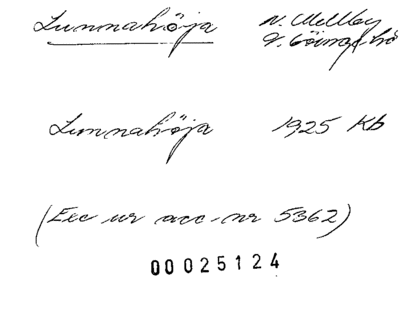 Lunnahöja N. Mellby
V. Göinge hd
Lunnahöja 1925 Kb
(Exc ur acc.-nr 5362)
00025124